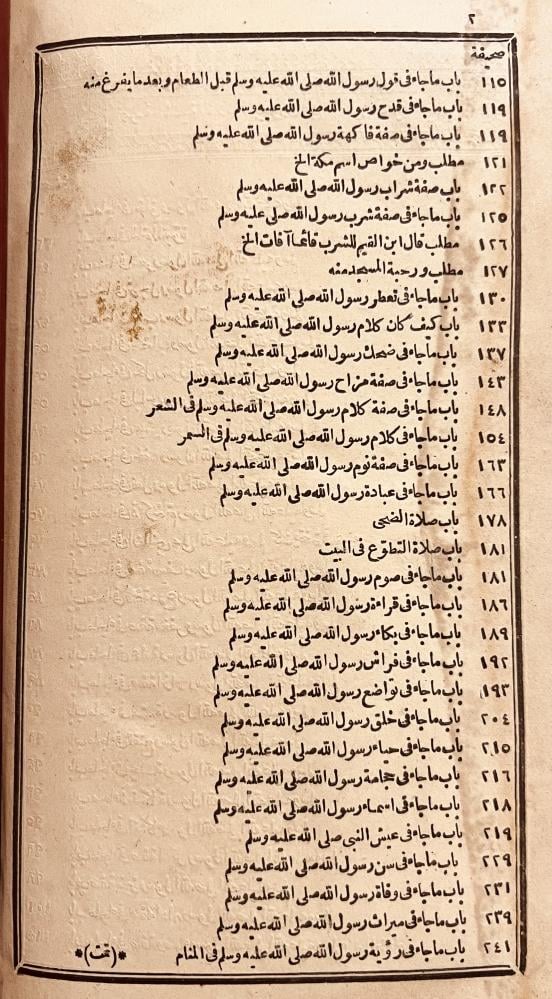 ٢
صحيفة
١١٥ باب ماجاء فى قول رسول الله صلى الله عليه وسلم قبل الطعام وبعد ما يفرغ منه
١١٩ باب ماجاء فى قدح رسول الله صلى الله عليه وسلم
١١٩ باب ماجاء فى صفة فاكهة رسول الله صلى الله عليه وسلم
١٢١ مطلب ومن خواص اسم مكة الخ
١٢٢ باب صفة شراب رسول الله صلى الله عليه وسلم
١٢٥ باب ماجاء فى صفة شرب رسول الله صلى الله عليه وسلم
١٢٦ مطلب قال ابن القيم للشرب قائما آفات الخ
١٢٧ مطلب ورحبة المسجد منه
١٣٠ باب ماجاء فى تعطر رسول الله صلى الله عليه وسلم
١٣٣ باب كيف كان كلام رسول الله صلى الله عليه وسلم
١٣٧ باب ماجاء فى ضحك رسول الله صلى الله عليه وسلم
١٤٣ باب ماجاء فى صفة مزاح رسول الله صلى الله عليه وسلم
١٤٨ باب ماجاء فى صفة كلام رسول الله صلى الله عليه وسلم فى الشعر
١٥٤ باب ماجاء فى كلام رسول الله صلى الله عليه وسلم فى السمر
١٦٣ باب ماجاء فى صفة نوم رسول الله صلى الله عليه وسلم
١٦٦ باب ماجاء فى عبادة رسول الله صلى الله عليه وسلم
١٧٨ باب صلاة الضحى
١٨١ باب صلاة التطوّع فى البيت
١٨١ باب ماجاء فى صوم رسول الله صلى الله عليه وسلم
١٨٦ باب ماجاء فى قراءة رسول الله صلى الله عليه وسلم
١٨٩ باب ماجاء فى بكاء رسول الله صلى الله عليه وسلم
١٩٢ باب ماجاء فى فراش رسول الله صلى الله عليه وسلم
١٩٣ باب ماجاء فى تواضع رسول الله صلى الله عليه وسلم
٢٠٤ باب ماجاء فى خلق رسول الله صلى الله عليه وسلم
٢١٥ باب ماجاء فى حياء رسول الله صلى الله عليه وسلم
٢١٦ باب ماجاء فى حجامة رسول الله صلى الله عليه وسلم
٢١٨ باب ماجاء فى اسماء رسول الله صلى الله عليه وسلم
٢١٩ باب ماجاء فى عيش النبى صلى الله عليه وسلم
٢٢٩ باب ماجاء فى سن رسول الله صلى الله عليه وسلم
٢٣١ باب ماجاء فى وفاة رسول الله صلى الله عليه وسلم
٢٣٩ باب ماجاء فى ميراث رسول الله صلى الله عليه وسلم
٢٤١ باب ماجاء فى رؤية رسول الله صلى الله عليه وسلم فى المنام *(تمت)*